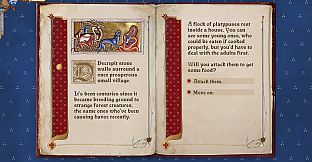 Decrepit stone
walls surround a
once prosperous
small village.
It's been centuries since it
became breeding ground to
strange forest creatures,
the same ones who've been
causing havoc recently.
A flock of platypuses rest
inside a house. You can
see some young ones, who
could be eaten if cooked
properly, but you'd have to
deal with the adults first.
Will you attack them to get
some food?
Attack them.
Move on.